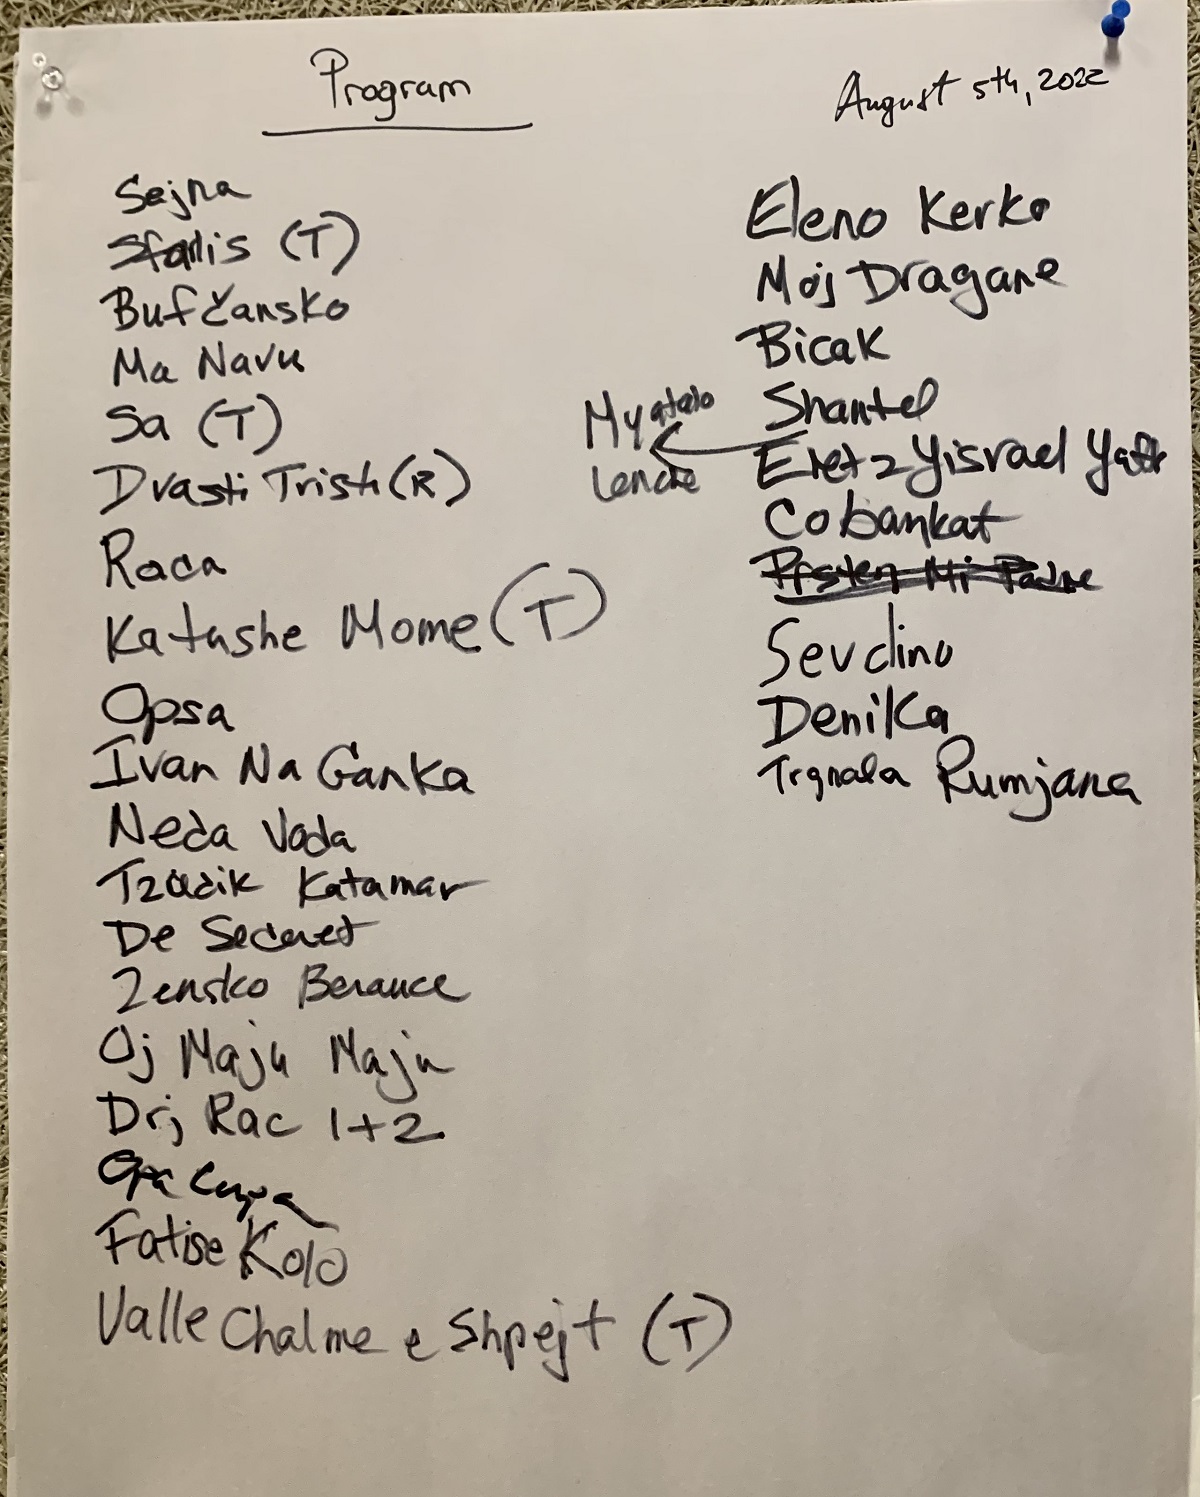 Program
August 5th, 2022
Sejna
Sfarlis (T)
Bufčansko
Ma Navu
Sa (T)
Drasti Tristi (R)
Raca
Katushe Mome (T)
Opsa
Ivan Na Ganka
Neda Voda
Tzadik Katamar
De Seceret
Zensko Berance
Oj Maju Maju
Drj Rac 1+2
Opa Cupa
Fatise Kolo
Valle Chalme e Shpejt (T)
Eleno Kerko
Moj Dragane
Bicak
Shantel
Myatalo
Lenche
Eretz Yisrael Yafa
Cobankat
Prsten Mi Padne
Sevdino
Denilka
Trgnala Rumjana